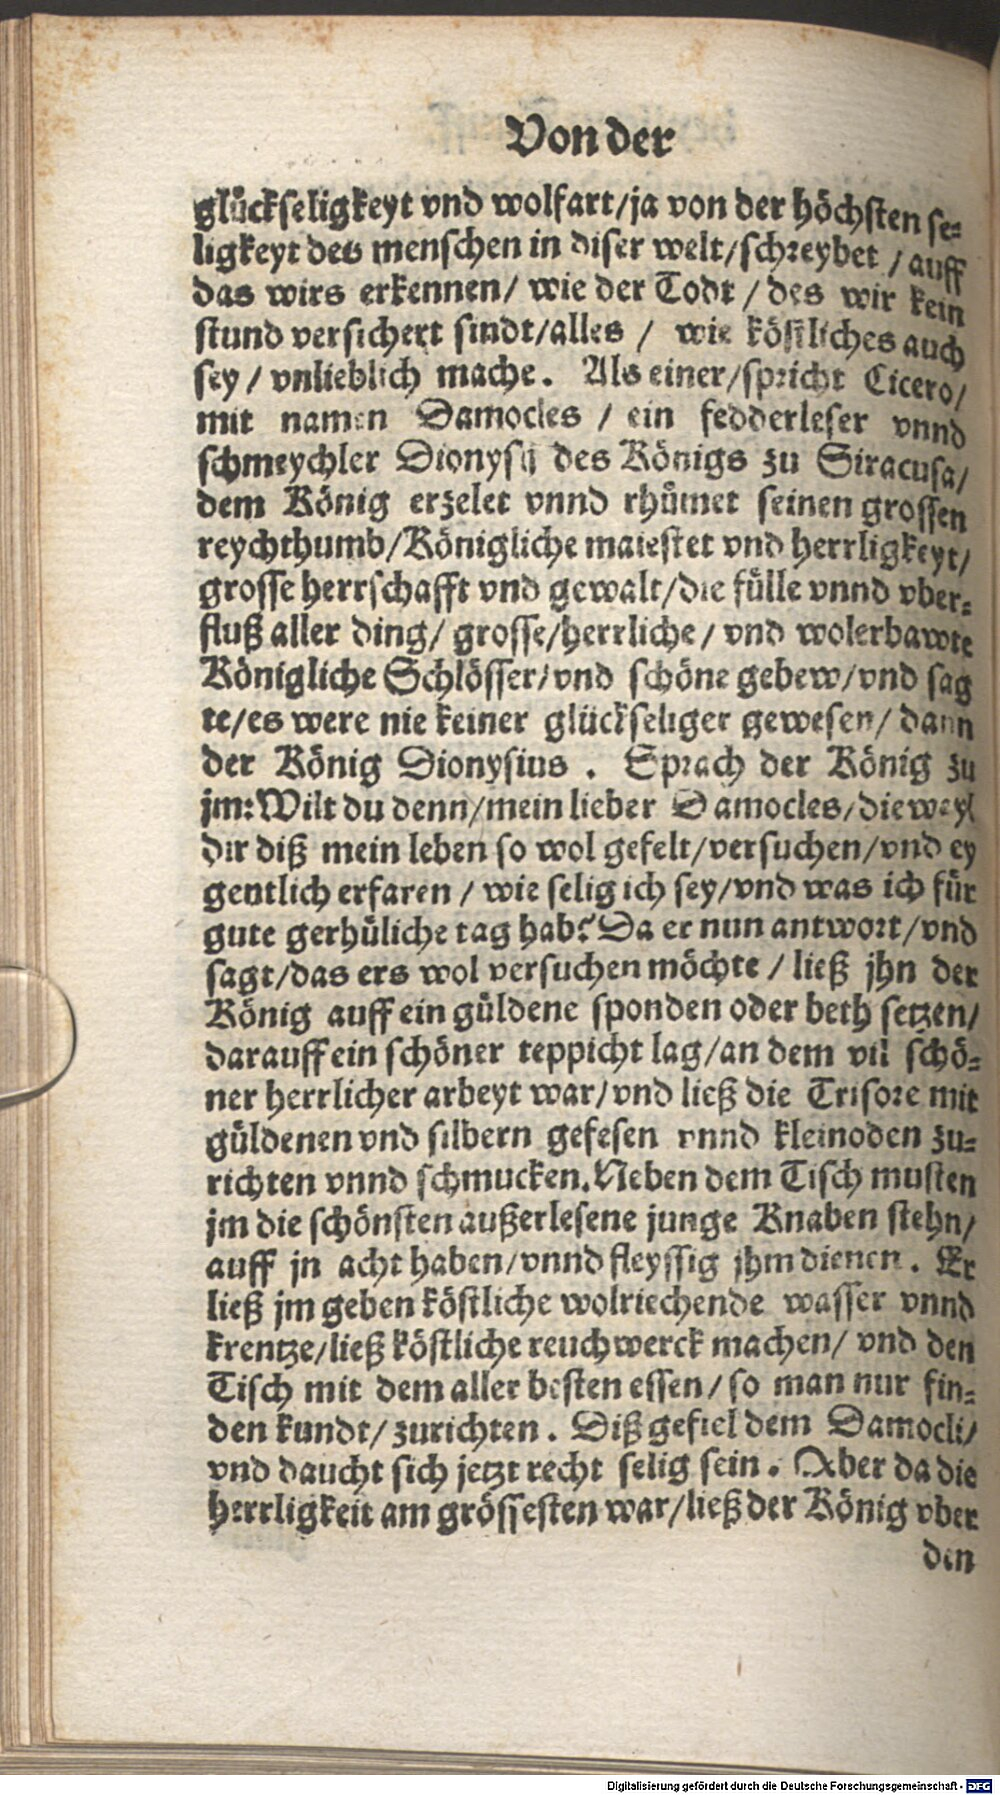 Von der
glückseligkeyt vnd wolfart/ja von der höchsten se⸗
ligkeyt des menschen in diser welt/schreybet / auff
das wirs erkennen/ wie der Todt / des wir kein
stund versichert sindt/alles / wie köstliches auch
sey / vnlieblich mache. Als einer/spricht Cicero/
mit namen Damocles / ein fedderleser vnnd
schmeychler Dionysij des Königs zu Siracusa/
dem König erzelet vnnd rhůmet seinen grossen
reychthumb/Königliche maiestet vnd herrligkeyt/
grosse herrschafft vnd gewalt/die fülle vnnd vber⸗
fluß aller ding/ grosse/herrliche / vnd wolerbawte
Königliche Schlösser/vnd schöne gebew/vnd sag
te/es were nie keiner glückseliger gewesen/ dann
der König Dionysius . Sprach der König zu
jm:Wilt du denn/mein lieber Damocles/die weyl
dir diß mein leben so wol gefelt/versuchen/vnd ey
gentlich erfaren / wie selig ich sey/vnd was ich für
gute gerhüliche tag hab? Da er nun antwort/vnd
sagt/das ers wol versuchen möchte / ließ jhn der
König auff ein güldene sponden oder beth setzen/
darauff ein schöner teppicht lag/an dem vil schö⸗
ner herrlicher arbeyt war/vnd ließ die Trisore mit
güldenen vnd silbern gefesen vnnd kleinoden zu⸗
richten vnnd schmucken. Neben dem Tisch musten
jm die schönsten außerlesene junge Knaben stehn/
auff jn acht haben/vnnd fleyssig jhm dienen . Er
ließ jm geben köstliche wolriechende wasser vnnd
krentze/ließ köstliche reuchwerck machen/ vnd den
Tisch mit dem aller besten essen/ so man nur fin⸗
den kundt/ zurichten . Diß gefiel dem Damocli/
vnd daucht sich jetzt recht selig sein . Aber da die
herrligkeit am grössesten war/ließ der König vber
den
Digitalisierung gefördert durch die Deutsche Forschungsgemeinschaft - DFG